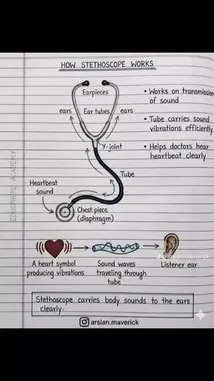 HOW STETHOSCOPE WORKS
Earpieces
ears
Ear tubes
ears
Y-joint
Tube
Heartbeat
sound
Chest piece
(diaphragm)
• Works on transmission
of sound
• Tube carries sound
vibrations efficiently
• Helps doctors hear
heartbeat clearly
A heart symbol
producing vibrations
Sound waves
traveling through
tube
Listener ear
Stethoscope carries body sounds to the ears
clearly.
arslan.maverick